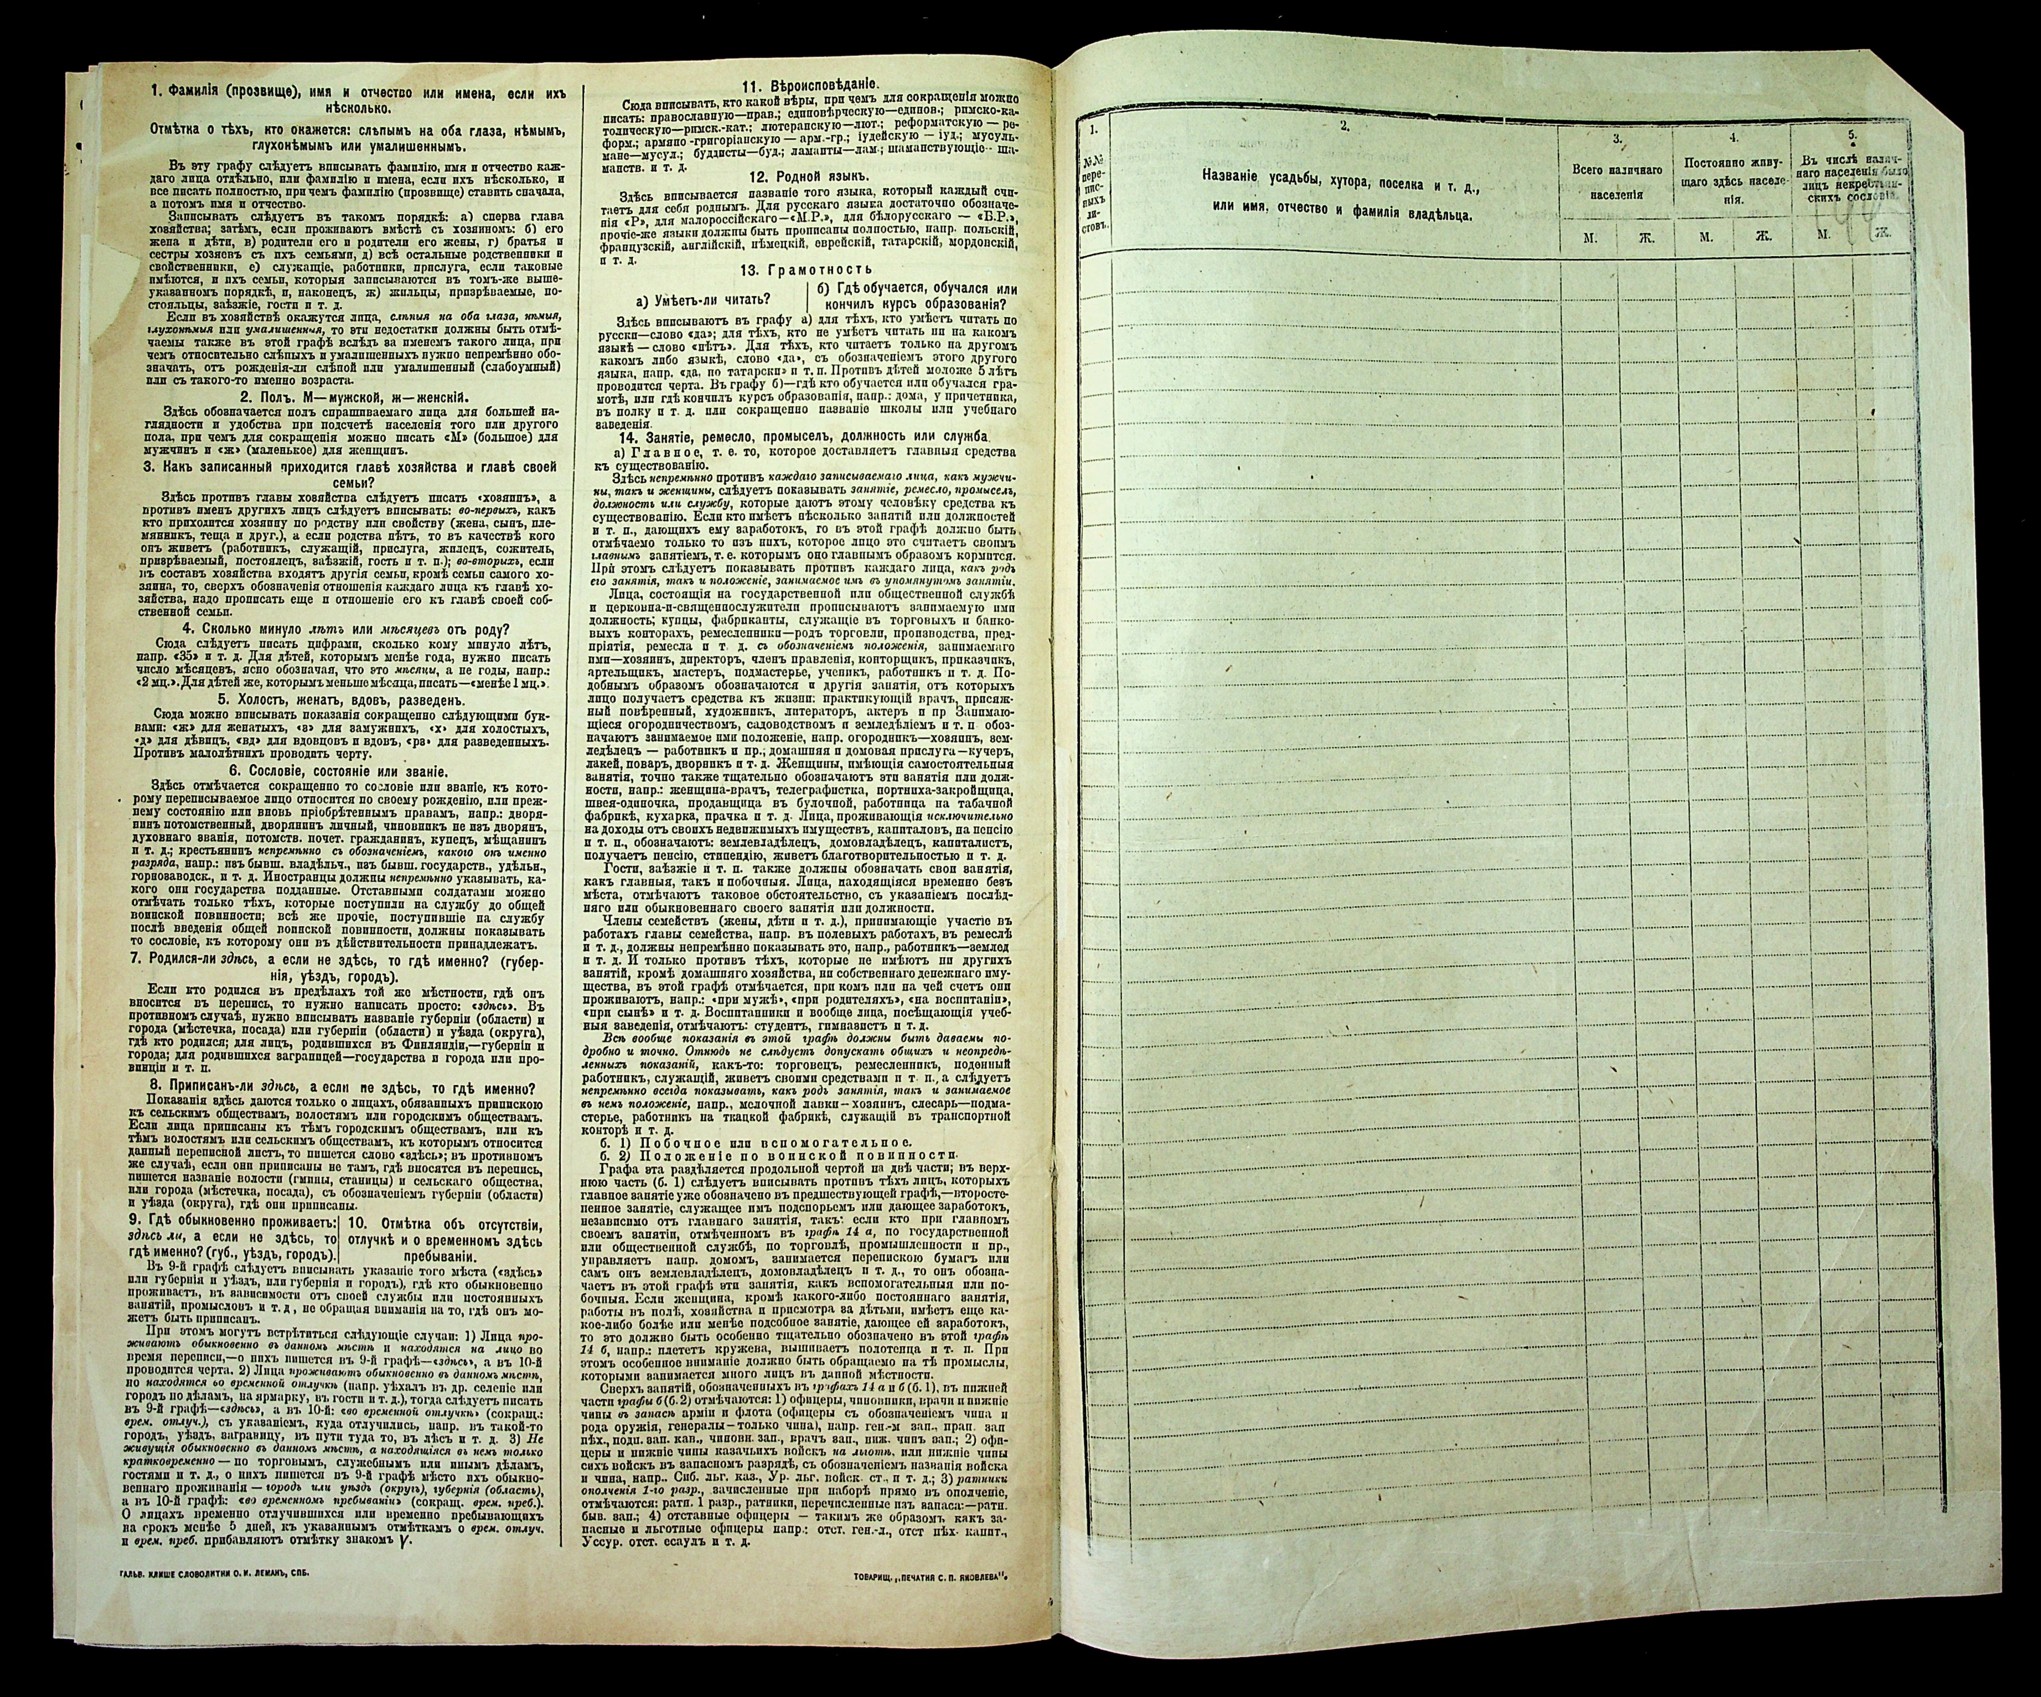 1. Фамилія (прозвище), имя и отчество или имена, если ихъ
нѣсколько.
Отмѣтка о тѣхъ, кто окажется: слѣпымъ на оба глаза, нѣмымъ,
глухонѣмымъ или умалишеннымъ.
Въ эту графу слѣдуетъ вписывать фамилію, имя и отчество каж-
даго лица отдѣльно, или фамилію и имена, если ихъ нѣсколько, и
все писать полностью, при чемъ фамилію (прозвище) ставить сначала,
а потомъ имя и отчество.
Записывать слѣдуетъ въ такомъ порядкѣ: а) сперва глава
хозяйства; затѣмъ, если проживаютъ вмѣстѣ съ хозяиномъ: б) его
жена и дѣти, в) родители его и родители его жены, г) братья и
сестры хозяевъ съ ихъ семьями, д) всѣ остальные родственники и
свойственники, е) служащіе, работники, прислуга, если таковые
имѣются, и ихъ семьи, которыя записываются въ томъ-же выше-
указанномъ порядкѣ, и, наконецъ, ж) жильцы, призрѣваемые, по-
стояльцы, заѣзжіе, гости и т. д.
Если въ хозяйствѣ окажутся лица, слѣпыя на оба глаза, нѣмыя,
глухонѣмыя или умалишенныя, то эти недостатки должны быть отмѣ-
чаемы также въ этой графѣ вслѣдъ за именемъ такого лица, при
чемъ относительно слѣпыхъ и умалишенныхъ нужно непремѣнно обо-
значать, отъ рожденія-ли слѣпой или умалишенный (слабоумный)
или съ такого-то именно возраста.
2. Полъ. М—мужской, ж—женскій.
Здѣсь обозначается полъ спрашиваемаго лица для большей на-
глядности и удобства при подсчетѣ населенія того или другого
пола, при чемъ для сокращенія можно писать «М» (большое) для
мужчинъ и «ж» (маленькое) для женщинъ.
3. Какъ записанный приходится главѣ хозяйства и главѣ своей
семьи?
Здѣсь противъ главы хозяйства слѣдуетъ писать «хозяинъ», а
противъ именъ другихъ лицъ слѣдуетъ вписывать: во-первыхъ, какъ
кто приходится хозяину по родству или свойству (жена, сынъ, пле-
мянникъ, теща и друг.), а если родства нѣтъ, то въ качествѣ кого
онъ живетъ (работникъ, служащій, прислуга, жилецъ, сожитель,
призрѣваемый, постоялецъ, заѣзжій, гость и т. п.); во-вторыхъ, если
въ составъ хозяйства входятъ другія семьи, кромѣ семьи самого хо-
зяина, то, сверхъ обозначенія отношенія каждаго лица къ главѣ хо-
зяйства, надо прописать еще и отношеніе его къ главѣ своей соб-
ственной семьи.
4. Сколько минуло лѣтъ или мѣсяцевъ отъ роду?
Сюда слѣдуетъ писать цифрами, сколько кому минуло лѣтъ,
напр. «35» и т. д. Для дѣтей, которымъ менѣе года, нужно писать
число мѣсяцевъ, ясно обозначая, что это мѣсяцы, а не годы, напр.:
«2 мц.». Для дѣтей же, которымъ меньше мѣсяца, писать—«менѣе 1 мц.».
5. Холостъ, женатъ, вдовъ, разведенъ.
Сюда можно вписывать показанія сокращенно слѣдующими бук-
вами: «ж» для женатыхъ, «з» для замужнихъ, «х» для холостыхъ,
«д» для дѣвицъ, «вд» для вдовцовъ и вдовъ, «рз» для разведенныхъ.
Противъ малолѣтнихъ проводить черту.
6. Сословіе, состояніе или званіе.
Здѣсь отмѣчается сокращенно то сословіе или званіе, къ кото-
рому переписываемое лицо относится по своему рожденію, или преж-
нему состоянію или вновь пріобрѣтеннымъ правамъ, напр.: дворя-
нинъ потомственный, дворянинъ личный, чиновникъ не изъ дворянъ,
духовнаго званія, потомств. почет. гражданинъ, купецъ, мѣщанинъ
и т. д.; крестьянинъ непремѣнно съ обозначеніемъ, какого онъ именно
разряда, напр.: изъ бывш. владѣльч., изъ бывш. государств., удѣльн.,
горнозаводск., и т. д. Иностранцы должны непремѣнно указывать, ка-
кого они государства подданные. Отставными солдатами можно
отмѣчать только тѣхъ, которые поступили на службу до общей
воинской повинности; всѣ же прочіе, поступившіе на службу
послѣ введенія общей воинской повинности, должны показывать
то сословіе, къ которому они въ дѣйствительности принадлежатъ.
7. Родился-ли здѣсь, а если не здѣсь, то гдѣ именно? (губер-
нія, уѣздъ, городъ).
Если кто родился въ предѣлахъ той же мѣстности, гдѣ онъ
вносится въ перепись, то нужно написать просто: «здѣсь». Въ
противномъ случаѣ, нужно вписывать названіе губерніи (области) и
города (мѣстечка, посада) или губерніи (области) и уѣзда (округа),
гдѣ кто родился; для лицъ, родившихся въ Финляндіи,—губерніи и
города; для родившихся заграницей—государства и города или про-
винціи и т. п.
8. Приписанъ-ли здѣсь, а если не здѣсь, то гдѣ именно?
Показанія здѣсь даются только о лицахъ, обязанныхъ припискою
къ сельскимъ обществамъ, волостямъ или городскимъ обществамъ.
Если лица приписаны къ тѣмъ городскимъ обществамъ, или къ
тѣмъ волостямъ или сельскимъ обществамъ, къ которымъ относится
данный переписной листъ, то пишется слово «здѣсь»; въ противномъ
же случаѣ, если они приписаны не тамъ, гдѣ вносятся въ перепись,
пишется названіе волости (гмины, станицы) и сельскаго общества,
или города (мѣстечка, посада), съ обозначеніемъ губерніи (области)
и уѣзда (округа), гдѣ они приписаны.
9. Гдѣ обыкновенно проживаетъ:
здѣсь ли, а если не здѣсь, то
гдѣ именно? (губ., уѣздъ, городъ).
10. Отмѣтка объ отсутствіи,
отлучкѣ и о временномъ здѣсь
пребываніи.
Въ 9-й графѣ слѣдуетъ вписывать указаніе того мѣста («здѣсь»
или губернія и уѣздъ, или губернія и городъ), гдѣ кто обыкновенно
проживаетъ, въ зависимости отъ своей службы или постоянныхъ
занятій, промысловъ и т. д, не обращая вниманія на то, гдѣ онъ мо-
жетъ быть приписанъ.
При этомъ могутъ встрѣтиться слѣдующіе случаи: 1) Лица про-
живаютъ обыкновенно въ данномъ мѣстѣ и находятся на лицо во
время переписи,—о нихъ пишется въ 9-й графѣ—«здѣсь», а въ 10-й
проводится черта. 2) Лица проживаютъ обыкновенно въ данномъ мѣстѣ,
но находятся во временной отлучкѣ (напр. уѣхалъ въ др. селеніе или
городъ по дѣламъ, на ярмарку, въ гости и т. д.), тогда слѣдуетъ писать
въ 9-й графѣ—«здѣсь», а въ 10-й: «во временной отлучкѣ» (сокращ.:
врем. отлуч.), съ указаніемъ, куда отлучились, напр. въ такой-то
городъ, уѣздъ, заграницу, въ пути туда то, въ лѣсъ и т. д. 3) Не
живущія обыкновенно въ данномъ мѣстѣ, а находящіяся въ немъ только
кратковременно — по торговымъ, служебнымъ или инымъ дѣламъ,
гостями и т. д., о нихъ пишется въ 9-й графѣ мѣсто ихъ обыкно-
веннаго проживанія — городъ или уѣздъ (округъ), губернія (область),
а въ 10-й графѣ: «во временномъ пребываніи» (сокращ. врем. преб.).
О лицахъ временно отлучившихся или временно пребывающихъ
на срокъ менѣе 5 дней, къ указаннымъ отмѣткамъ о врем. отлуч.
и врем. преб. прибавляютъ отмѣтку знакомъ V.
ГАЛЬВ. КЛИШЕ СЛОВОЛИТНИ О. И. ЛЕМАНЪ, СПБ.
11. Вѣроисповѣданіе.
Сюда вписывать, кто какой вѣры, при чемъ для сокращенія можно
писать: православную—прав.; единовѣрческую—единов.; римско-ка-
толическую—римск.-кат.; лютеранскую—лют.; реформатскую — ре-
форм.; армяно-григоріанскую — арм.-гр.; іудейскую — іуд.; мусуль-
мане—мусул.; буддисты—буд.; ламаиты—лам.; шаманствующіе— ша-
манств. и т. д.
12. Родной языкъ.
Здѣсь вписывается названіе того языка, который каждый счи-
таетъ для себя роднымъ. Для русскаго языка достаточно обозначе-
нія «Р», для малороссійскаго—«М.Р.», для бѣлорусскаго — «Б.Р.»,
прочіе-же языки должны быть прописаны полностью, напр. польскій,
французскій, англійскій, нѣмецкій, еврейскій, татарскій, мордовскій,
и т. д.
13. Грамотность
а) Умѣетъ-ли читать?
б) Гдѣ обучается, обучался или
кончилъ курсъ образованія?
Здѣсь вписываютъ въ графу а) для тѣхъ, кто умѣетъ читать по
русски—слово «да»; для тѣхъ, кто не умѣетъ читать ни на какомъ
языкѣ — слово «нѣтъ». Для тѣхъ, кто читаетъ только на другомъ
какомъ либо языкѣ, слово «да», съ обозначеніемъ этого другого
языка, напр. «да, по татарски» и т. п. Противъ дѣтей моложе 5 лѣтъ
проводится черта. Въ графу б)—гдѣ кто обучается или обучался гра-
мотѣ, или гдѣ кончилъ курсъ образованія, напр.: дома, у причетника,
въ полку и т. д. или сокращенно названіе школы или учебнаго
заведенія.
14. Занятіе, ремесло, промыселъ, должность или служба.
а) Главное, т. е. то, которое доставляетъ главныя средства
къ существованію.
Здѣсь непремѣнно противъ каждаго записываемаго лица, какъ мужчи-
ны, такъ и женщины, слѣдуетъ показывать занятіе, ремесло, промыселъ,
должность или службу, которые даютъ этому человѣку средства къ
существованію. Если кто имѣетъ нѣсколько занятій или должностей
и т. п., дающихъ ему заработокъ, то въ этой графѣ должно быть
отмѣчаемо только то изъ нихъ, которое лицо это считаетъ своимъ
главнымъ занятіемъ, т. е. которымъ оно главнымъ образомъ кормится.
При этомъ слѣдуетъ показывать противъ каждаго лица, какъ родъ
его занятія, такъ и положеніе, занимаемое имъ въ упомянутомъ занятіи.
Лица, состоящія на государственной или общественной службѣ
и церковно-и-священнослужители прописываютъ занимаемую ими
должность; купцы, фабриканты, служащіе въ торговыхъ и банко-
выхъ конторахъ, ремесленники—родъ торговли, производства, пред-
пріятія, ремесла и т. д. съ обозначеніемъ положенія, занимаемаго
ими—хозяинъ, директоръ, членъ правленія, конторщикъ, приказчикъ,
артельщикъ, мастеръ, подмастерье, ученикъ, работникъ и т. д. По-
добнымъ образомъ обозначаются и другія занятія, отъ которыхъ
лицо получаетъ средства къ жизни: практикующій врачъ, присяж-
ный повѣренный, художникъ, литераторъ, актеръ и пр Занимаю-
щіеся огородничествомъ, садоводствомъ и земледѣліемъ и т. п. обоз-
начаютъ занимаемое ими положеніе, напр. огородникъ—хозяинъ, зем-
ледѣлецъ — работникъ и пр.; домашняя и домовая прислуга—кучеръ,
лакей, поваръ, дворникъ и т. д. Женщины, имѣющія самостоятельныя
занятія, точно также тщательно обозначаютъ эти занятія или долж-
ности, напр.: женщина-врачъ, телеграфистка, портниха-закройщица,
швея-одиночка, продавщица въ булочной, работница на табачной
фабрикѣ, кухарка, прачка и т. д. Лица, проживающія исключительно
на доходы отъ своихъ недвижимыхъ имуществъ, капиталовъ, на пенсію
и т. п., обозначаютъ: землевладѣлецъ, домовладѣлецъ, капиталистъ,
получаетъ пенсію, стипендію, живетъ благотворительностью и т. д.
Гости, заѣзжіе и т. п. также должны обозначать свои занятія,
какъ главныя, такъ и побочныя. Лица, находящіяся временно безъ
мѣста, отмѣчаютъ таковое обстоятельство, съ указаніемъ послѣд-
няго или обыкновеннаго своего занятія или должности.
Члены семействъ (жены, дѣти и т. д.), принимающіе участіе въ
работахъ главы семейства, напр. въ полевыхъ работахъ, въ ремеслѣ
и т. д., должны непремѣнно показывать это, напр., работникъ—землед
и т. д. И только противъ тѣхъ, которые не имѣютъ ни другихъ
занятій, кромѣ домашняго хозяйства, ни собственнаго денежнаго иму-
щества, въ этой графѣ отмѣчается, при комъ или на чей счетъ они
проживаютъ, напр.: «при мужѣ», «при родителяхъ», «на воспитаніи»,
«при сынѣ» и т. д. Воспитанники и вообще лица, посѣщающія учеб-
ныя заведенія, отмѣчаютъ: студентъ, гимназистъ и т. д.
Всѣ вообще показанія въ этой графѣ должны быть даваемы по-
дробно и точно. Отнюдь не слѣдуетъ допускать общихъ и неопредѣ-
ленныхъ показаній, какъ-то: торговецъ, ремесленникъ, поденный
работникъ, служащій, живетъ своими средствами и т. п., а слѣдуетъ
непремѣнно всегда показывать, какъ родъ занятія, такъ и занимаемое
въ немъ положеніе, напр., мелочной лавки—хозяинъ, слесарь—подма-
стерье, работникъ на ткацкой фабрикѣ, служащій въ транспортной
конторѣ и т. д.
б. 1) Побочное или вспомогательное.
б. 2) Положеніе по воинской повинности.
Графа эта раздѣляется продольной чертой на двѣ части; въ верх-
нюю часть (б. 1) слѣдуетъ вписывать противъ тѣхъ лицъ, которыхъ
главное занятіе уже обозначено въ предшествующей графѣ,—второсте-
пенное занятіе, служащее имъ подспорьемъ или дающее заработокъ,
независимо отъ главнаго занятія, такъ: если кто при главномъ
своемъ занятіи, отмѣченномъ въ графѣ 14 а, по государственной
или общественной службѣ, по торговлѣ, промышленности и пр.,
управляетъ напр. домомъ, занимается перепискою бумагъ или
самъ онъ землевладѣлецъ, домовладѣлецъ и т. д., то онъ обозна-
чаетъ въ этой графѣ эти занятія, какъ вспомогательныя или по-
бочныя. Если женщина, кромѣ какого-либо постояннаго занятія,
работы въ полѣ, хозяйства и присмотра за дѣтьми, имѣетъ еще ка-
кое-либо болѣе или менѣе подсобное занятіе, дающее ей заработокъ,
то это должно быть особенно тщательно обозначено въ этой графѣ
14 б, напр.: плететъ кружева, вышиваетъ полотенца и т. п. При
этомъ особенное вниманіе должно быть обращаемо на тѣ промыслы,
которыми занимается много лицъ въ данной мѣстности.
Сверхъ занятій, обозначенныхъ въ графахъ 14 а и б (б. 1), въ нижней
части графы б (б. 2) отмѣчаются: 1) офицеры, чиновники, врачи и нижніе
чины въ запасѣ арміи и флота (офицеры съ обозначеніемъ чина и
рода оружія, генералы—только чина), напр. ген.-м зап., прап. зап
пѣх., подп. зап. кав., чиновн. зап., врачъ зап., ниж. чинъ зап.; 2) офи-
церы и нижніе чины казачьихъ войскъ на льготѣ, или нижніе чины
сихъ войскъ въ запасномъ разрядѣ, съ обозначеніемъ названія войска
и чина, напр.. Сиб. льг. каз., Ур. льг. войск. ст., и т. д.; 3) ратники
ополченія 1-го разр., зачисленные при наборѣ прямо въ ополченіе,
отмѣчаются: ратн. 1 разр., ратники, перечисленные изъ запаса:—ратн.
быв. зап.; 4) отставные офицеры — такимъ же образомъ какъ за-
пасные и льготные офицеры напр.: отст. ген.-л., отст пѣх. капит.,
Уссур. отст. есаулъ и т. д.
ТОВАРИЩ. „ПЕЧАТНЯ С. П. ЯКОВЛЕВА".
1.
№№
пере-
пис-
ныхъ
ли-
стовъ.
2.
Названіе усадьбы, хутора, поселка и т. д.,
или имя, отчество и фамилія владѣльца.
3.
Всего наличнаго
населенія
М. Ж.
4.
Постоянно живу-
щаго здѣсь населе-
нія.
М. Ж.
5.
Въ числѣ налич-
наго населенія было
лицъ некрестьян-
скихъ сословій.
М. Ж.